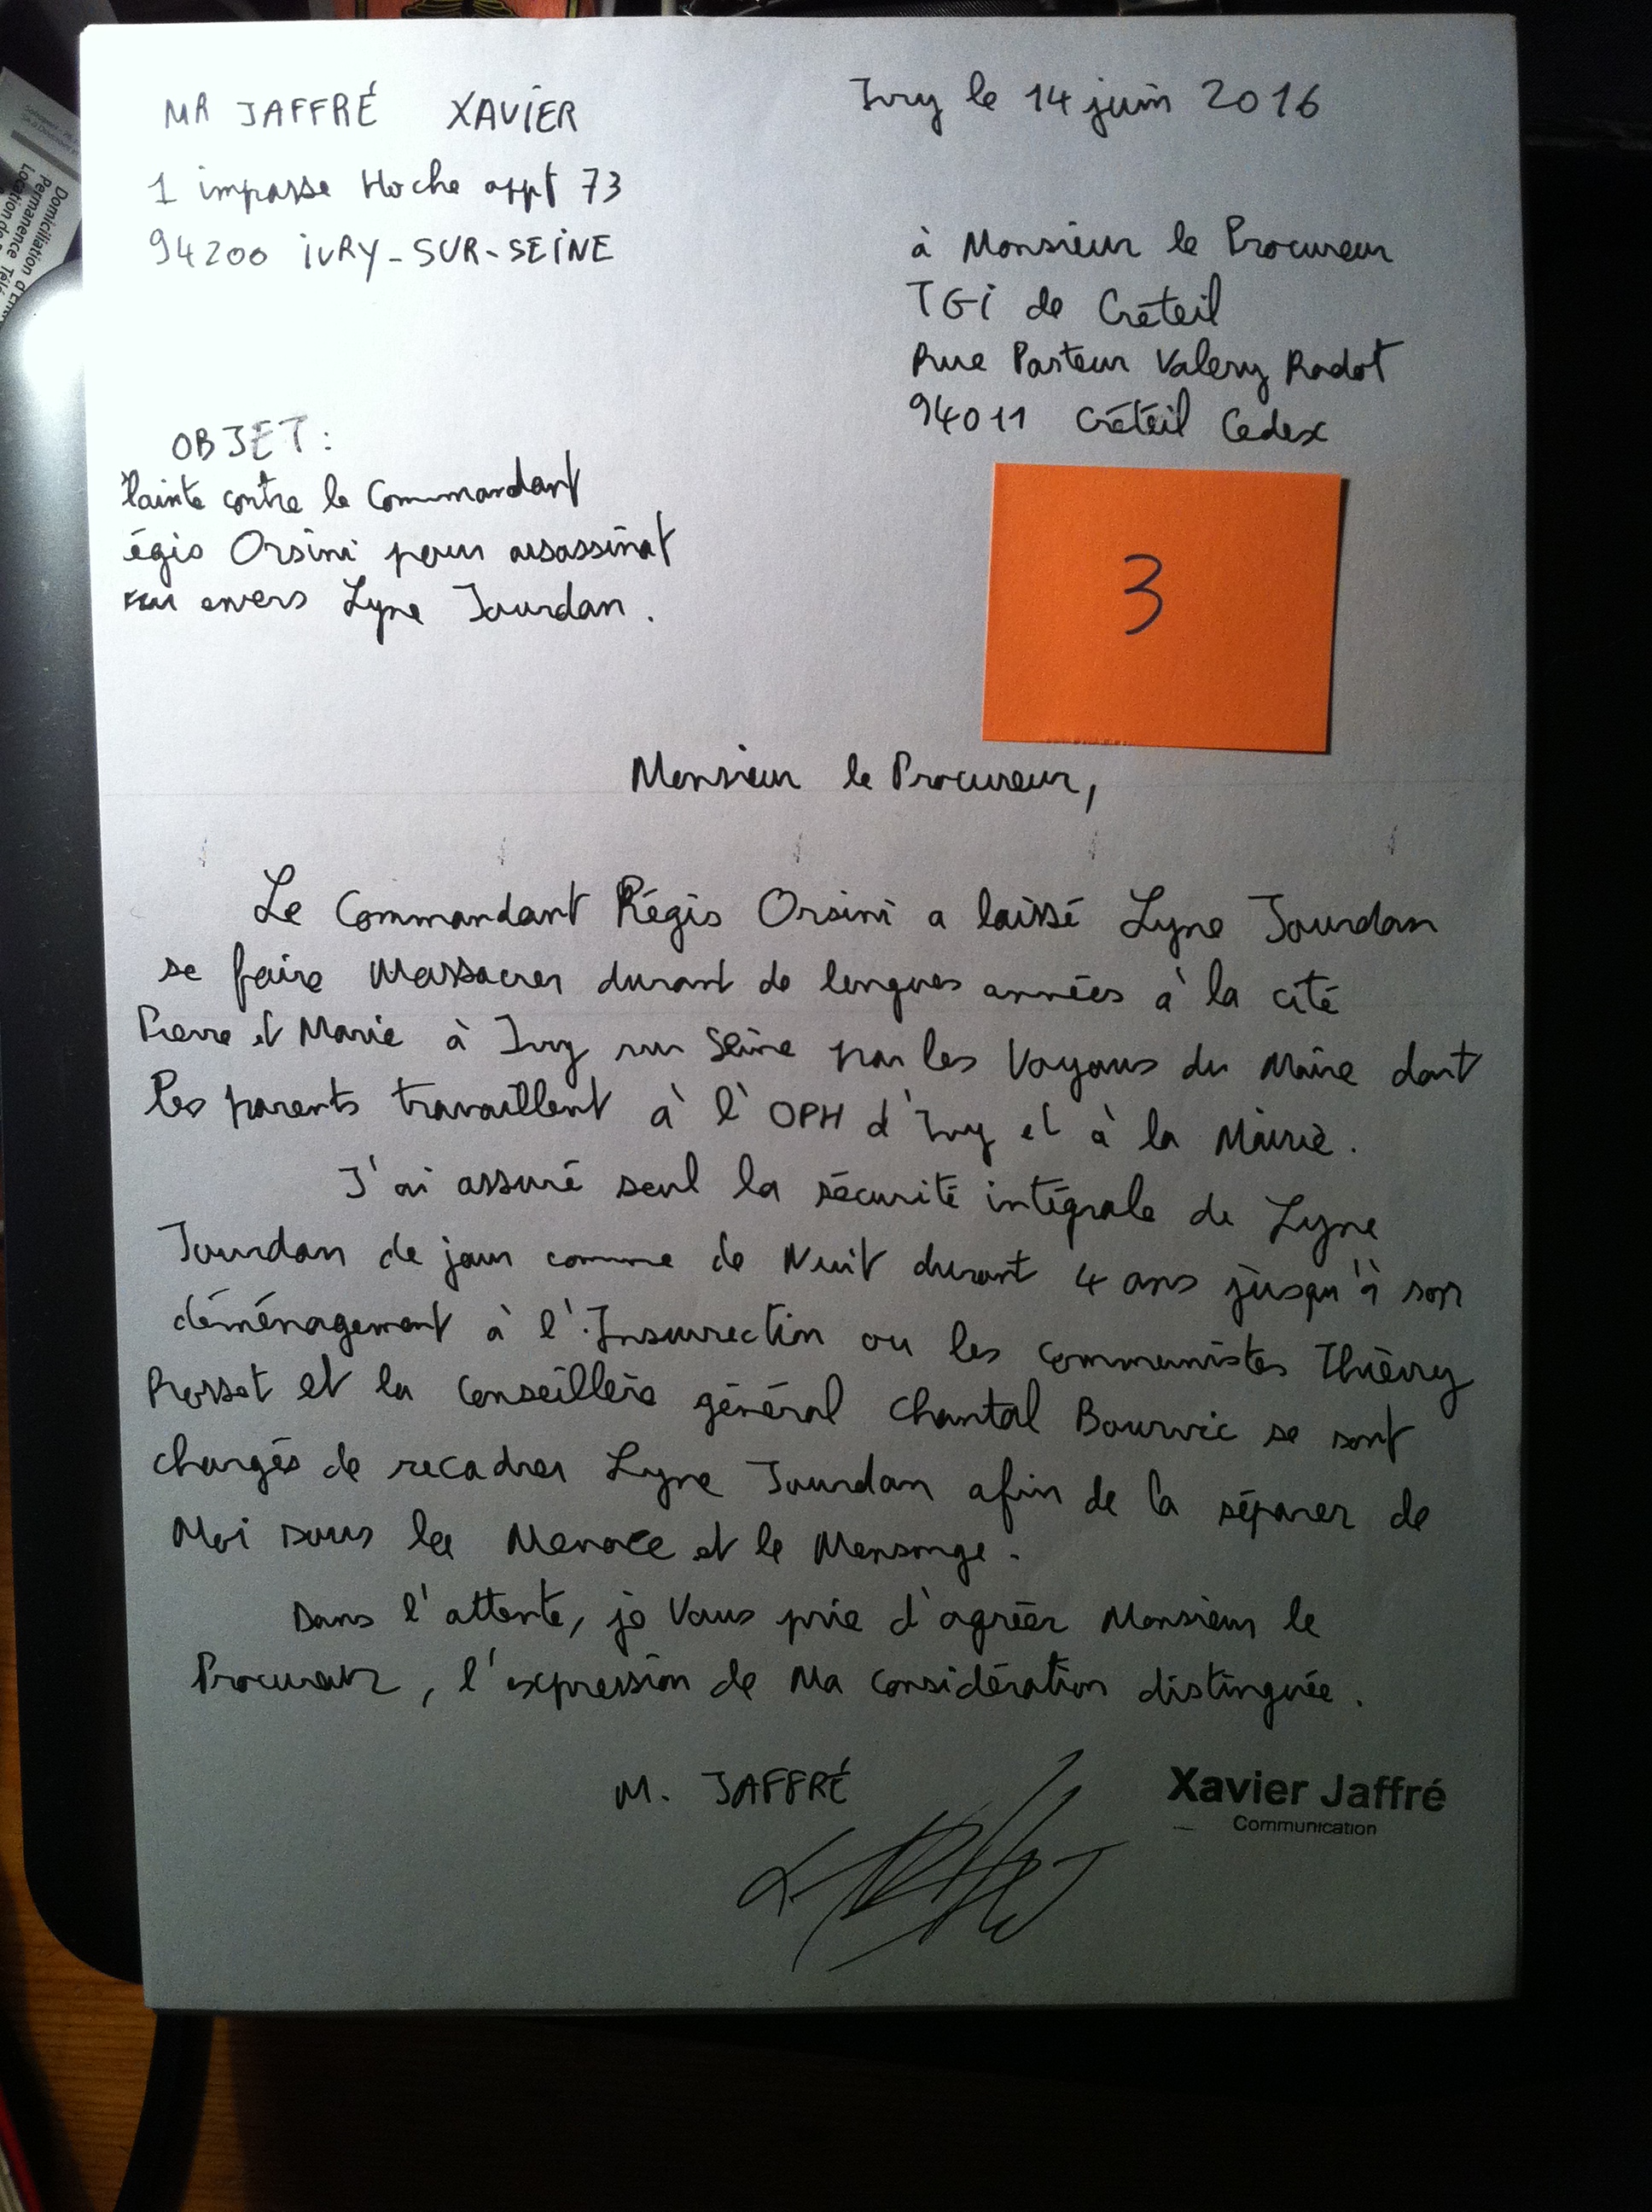 MR JAFFRÉ XAVIER
Ivry le 14 juin 2016
1 impasse Hoche appt 73
94200 IVRY-SUR-SEINE
à Monsieur le Procureur
TGI de Créteil
Rue Pasteur Valery Radot
94011 Créteil Cedex
OBJET:
Plainte contre le Commandant
égis Orsini pour assassinat
envers Lyne Jourdan.
3
Monsieur le Procureur,
Le Commandant Régis Orsini a laissé Lyne Jourdan
se faire Massacrer durant de longues années à la cité
Pierre et Marie à Ivry sur Seine par les Voyous du Maire dont
les parents travaillent à l'OPH d'Ivry et à la Mairie.
J'ai assuré seul la sécurité intégrale de Lyne
Jourdan de jour comme de Nuit durant 4 ans jusqu'à son
déménagement à l'Insurrection ou les communistes Thierry
et la Conseillère général Chantal Bourvic se sont
chargés de recadrer Lyne Jourdan afin de la séparer de
Moi sous la Menace et le Mensonge.
Dans l'attente, je Vous prie d'agréer Monsieur le
Procureur, l'expression de Ma considération distinguée.
M. JAFFRÉ
Xavier Jaffré
Communication
Domiciliation d'En
Permanence Télé
Location de